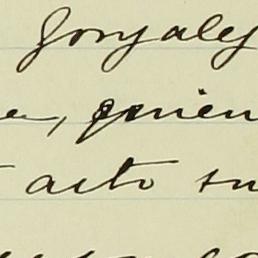 Gonzalez
e, quien
acto su